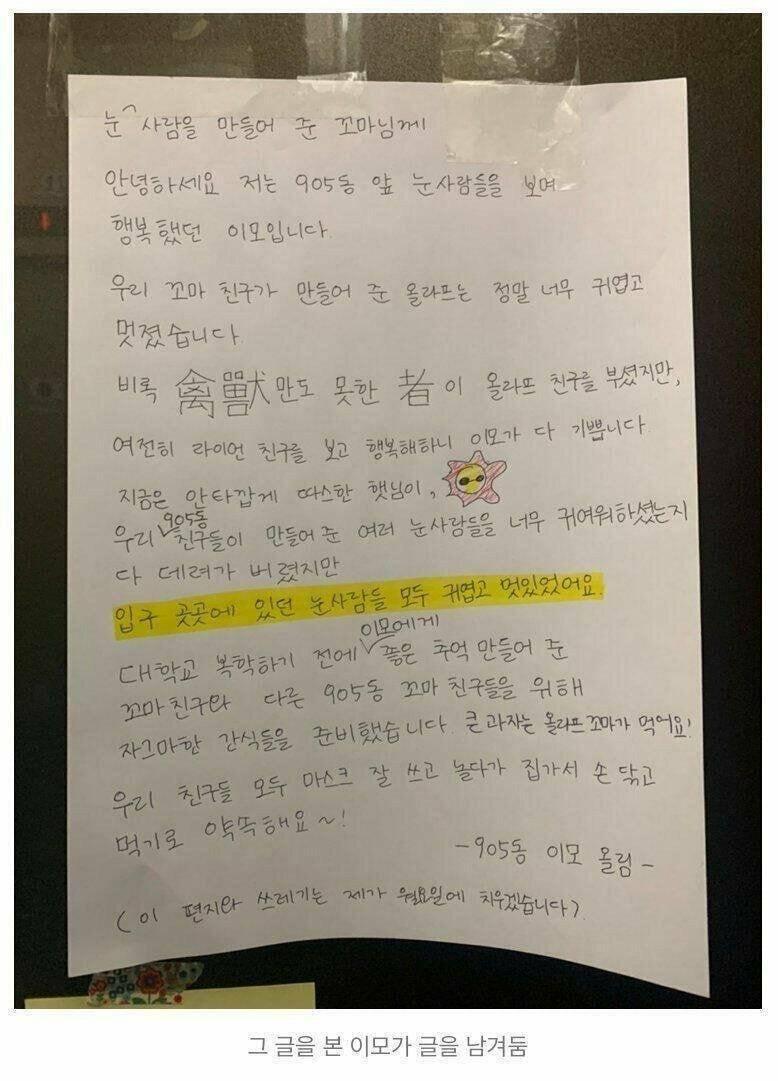 눈^사람을 만들어 준 꼬마님께
안녕하세요 저는 905동 앞 눈사람들을 보며
행복했던 이모입니다.
우리 꼬마 친구가 만들어 준 올라프는 정말 너무 귀엽고
멋졌습니다.
비록 禽獸만도 못한 者이 올라프 친구를 부셨지만,
여전히 라이언 친구를 보고 행복해하니 이모가 다 기쁩니다.
지금은 안타깝게 따스한 햇님이,
우리 905동 친구들이 만들어준 여러 눈사람들을 너무 귀여워하셨는지
다 데려가 버렸지만
입구 곳곳에 있던 눈사람들 모두 귀엽고 멋있었어요.
대학교 복학하기 전에 이모에게 좋은 추억 만들어 준
꼬마친구와 다른 905동 꼬마 친구들을 위해
자그마한 간식들을 준비했습니다. 큰 과자는 올라프 꼬마가 먹어요!
우리 친구들 모두 마스크 잘 쓰고 놀다가 집가서 손 닦고
먹기로 약쏙해요~!
-905동 이모 올림-
(이 편지와 쓰레기는 제가 월요일에 치우겠습니다).
그 글을 본 이모가 글을 남겨둠